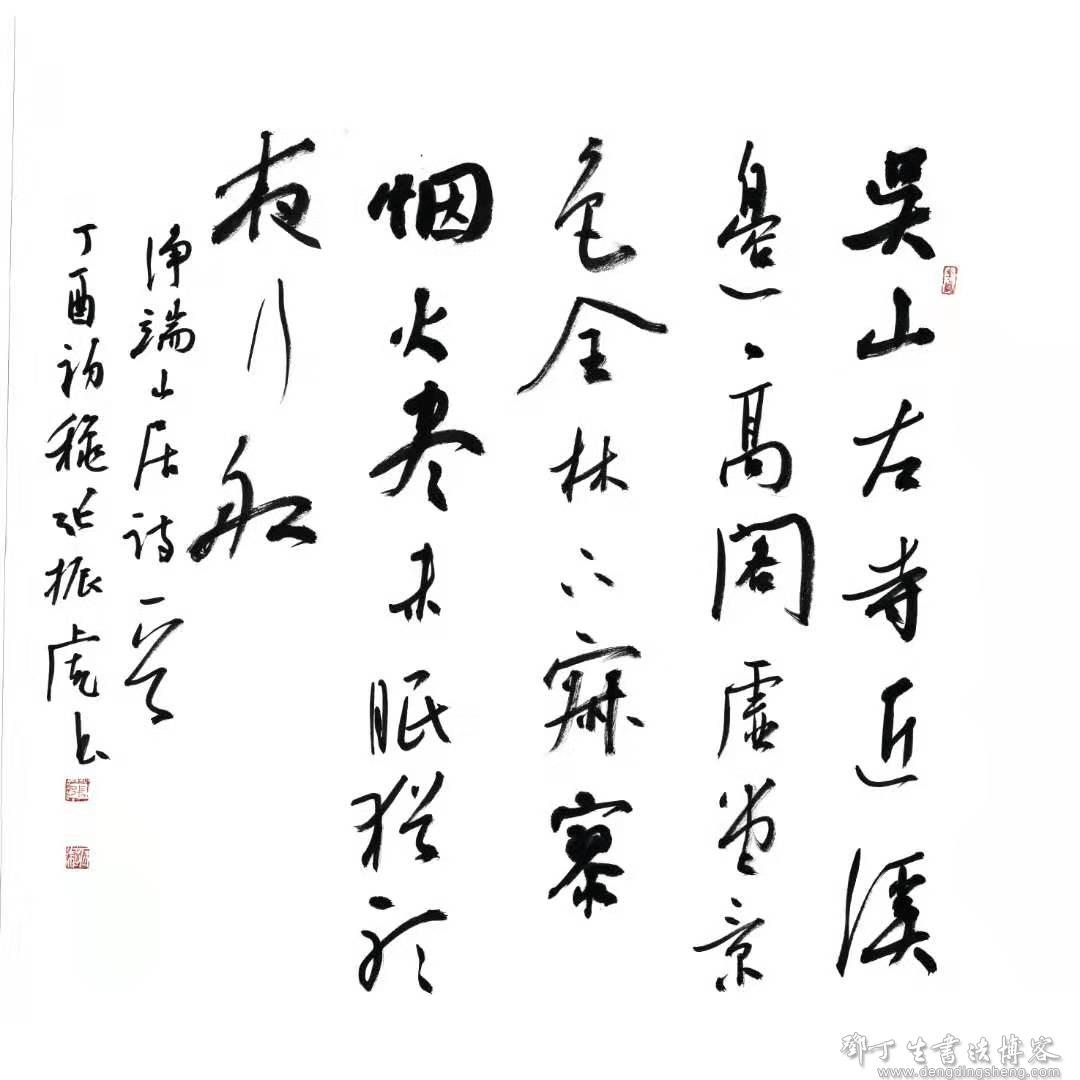 吴山古寺近溪
邊高阁虚堂景
色全林下寂寥
烟火尽未眠犹听
夜行船
净端山居诗一首
丁酉初穐张振虎书
鄧丁生書法博客
www.dengdingsheng.com